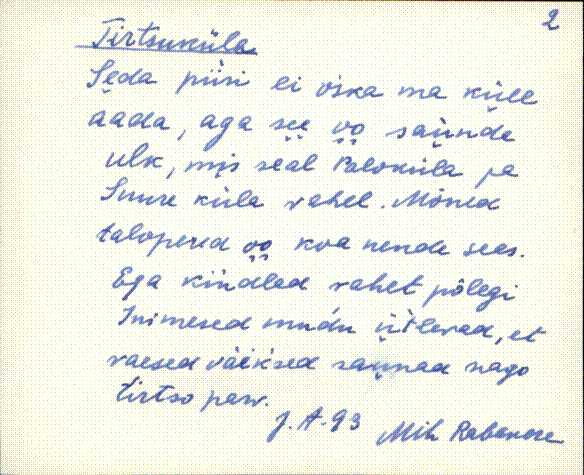 2
Tirtsuküla
Seda piiri ei oska ma küll
aada, aga see oo saunde
ulk, mis seal Paloküla ja
Suure küla vahel. Mõned
talopered oo kva nende sees.
Ega kindlad vahet põlegi
Inimesed mudu ütlevad, et
vaesed väiksed saunad nago
tirtso parv.
J. A-93 Mih Rabanose